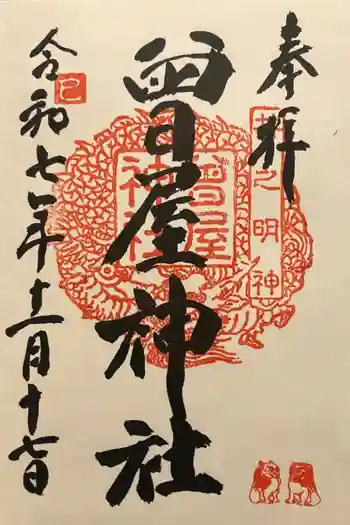 奉拝
井之明神
曽屋神社
曽屋神社
令和七年十一月十七日
巳